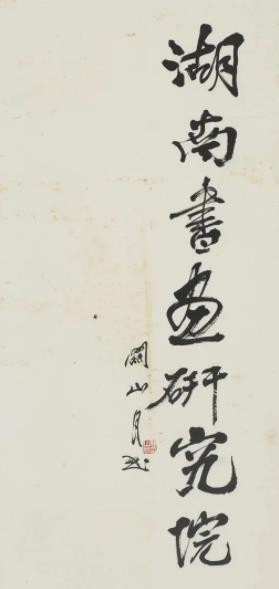 湖南书画研究院
關山月題